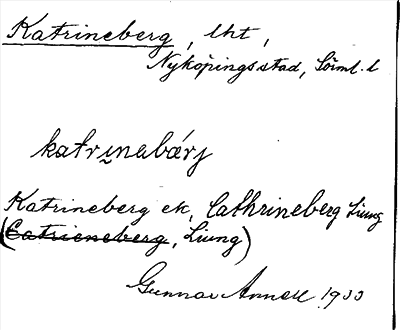 Katrineberg, lht,
Nyköpings stad, Söml. l
katrinabærj
Katrineberg ek, Cathrineberg Liung
(Catrieneberg, Liung)
Gunnar Annell 1933